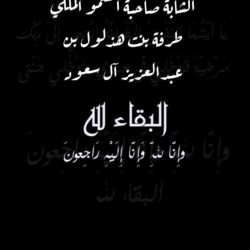 الشابة صاحبة السمو الملكي
طرفة بنت هذلول بن
عبدالعزيز آل سعود
البقاء لله
وإنا لله وإنا إليه راجعون